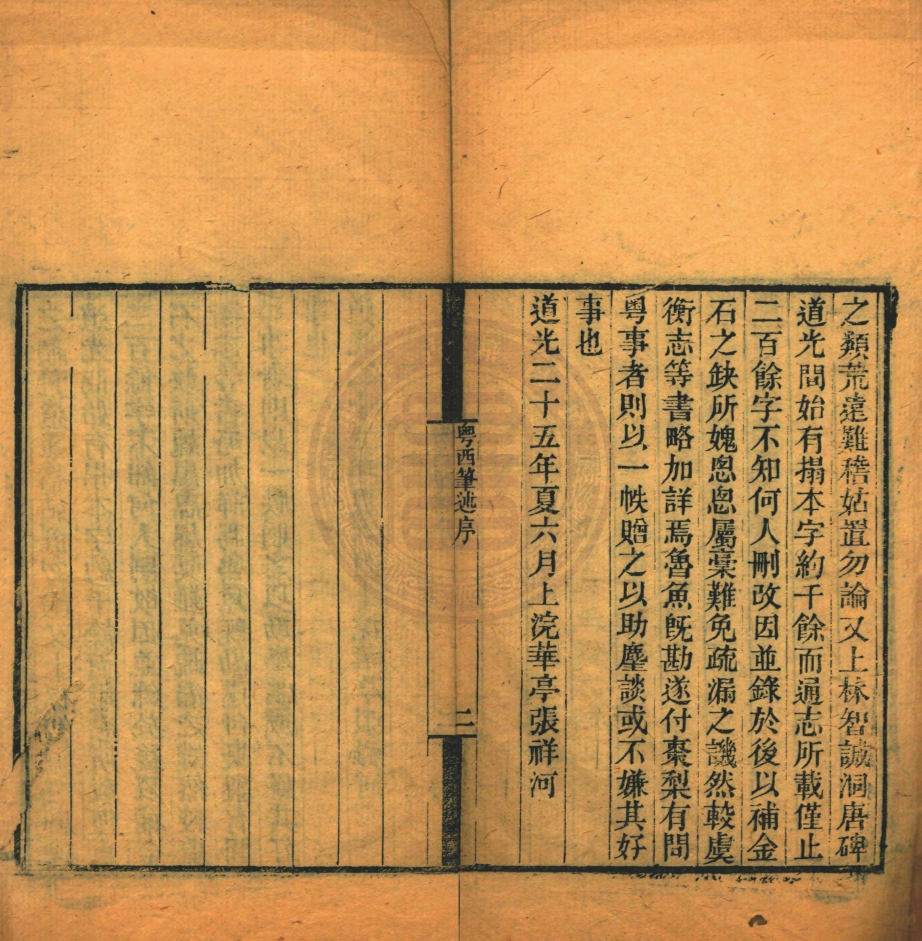 之類荒遠難稽姑置勿論又上林智誠洞唐碑
道光間始有搨本字約千餘而通志所載僅止
二百餘字不知何人刪改因並錄於後以補金
石之缺所媿悤悤屬稾難免疏漏之譏然較虞
衡志等書略加詳焉魯魚旣勘遂付棗梨有問
粵事者則以一帙贈之以助麈談或不嫌其好
事也
道光二十五年夏六月上浣華亭張祥河
粵西筆述序
二